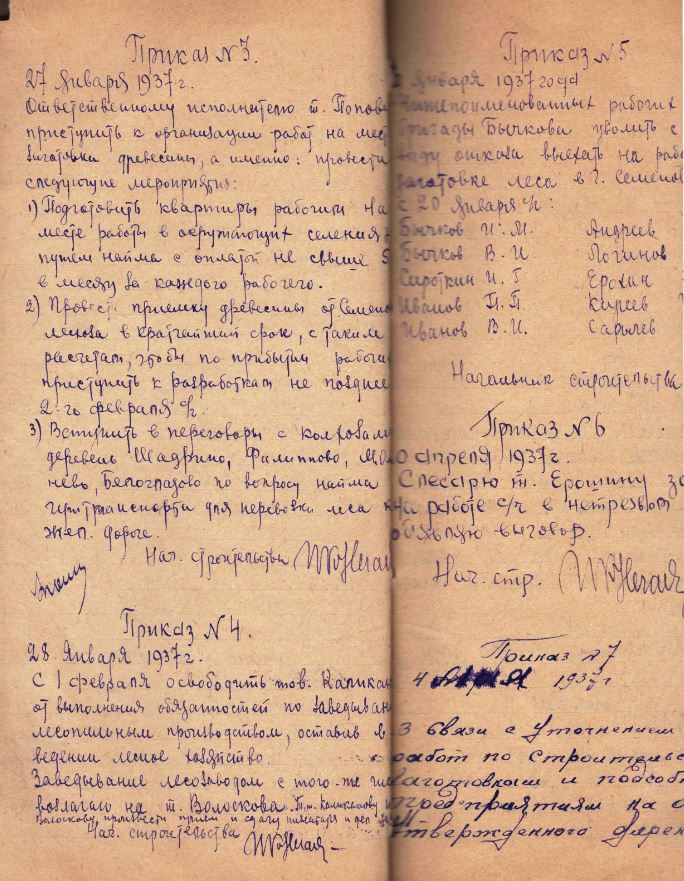 Приказ N 3.
27 Января 1937 г.
Ответственному исполнителю т. Попов
приступить к организации работ на мест
заготовки древесины, а именно: провести
следующие мероприятия:
1) Подготовить квартиры рабочим на
месте работы в окружающих селения
путем найма с оплатой не свыше 5
в месяц за каждого рабочего.
2) Провести приемку древесины от Семено
лесхоза в кратчайший срок, с таким
расчетам, чтобы по прибытии рабочи
приступить к разработкам не позднее
2-го февраля с/г.
3) Вступить в переговоры с колхозам
деревень Шадрино, Филиппово,
нево, Белоглазово по вопросу найма
гужтранспорта для перевозки леса к
жел. дороге.
Нач. строительства
Приказ N 4.
28 Января 1937 г.
С 1 февраля освободить тов. Капкан
от выполнения обязанностей по заведыван
лесопильным производством, оставив в
ведении лесное хозяйство.
Заведывание лесозаводом с того-же чи
возлагаю на т. Волоскова. Т.т.
Волоскову произвести прием и сдачу инвентаря и дел
Нач. строительства
Приказ N 5
Января 1937 года
нижепоименованных рабочих
бригады Бычкова уволить с
виду отказа выехать на рабо
заготовке леса в г. Семенов
с 20 Января с/г:
Бычков И. М. Андреев
Бычков В. И. Логинов
Сироткин И. Г Ерохин
Иванов П. П. Киреев
Иванов В. И. Сарычев
Начальник строительства
Приказ N 6
0 апреля 1937 г.
Слесарю т. Ерошину за
на работе с/ч в нетрезвом
объявляю выговор.
Нач. стр.
Приказ N 7
4 1937 г
В связи с уточнением
работ по строительс
заготовкам и подсоб
предприятиям на
утвержденного